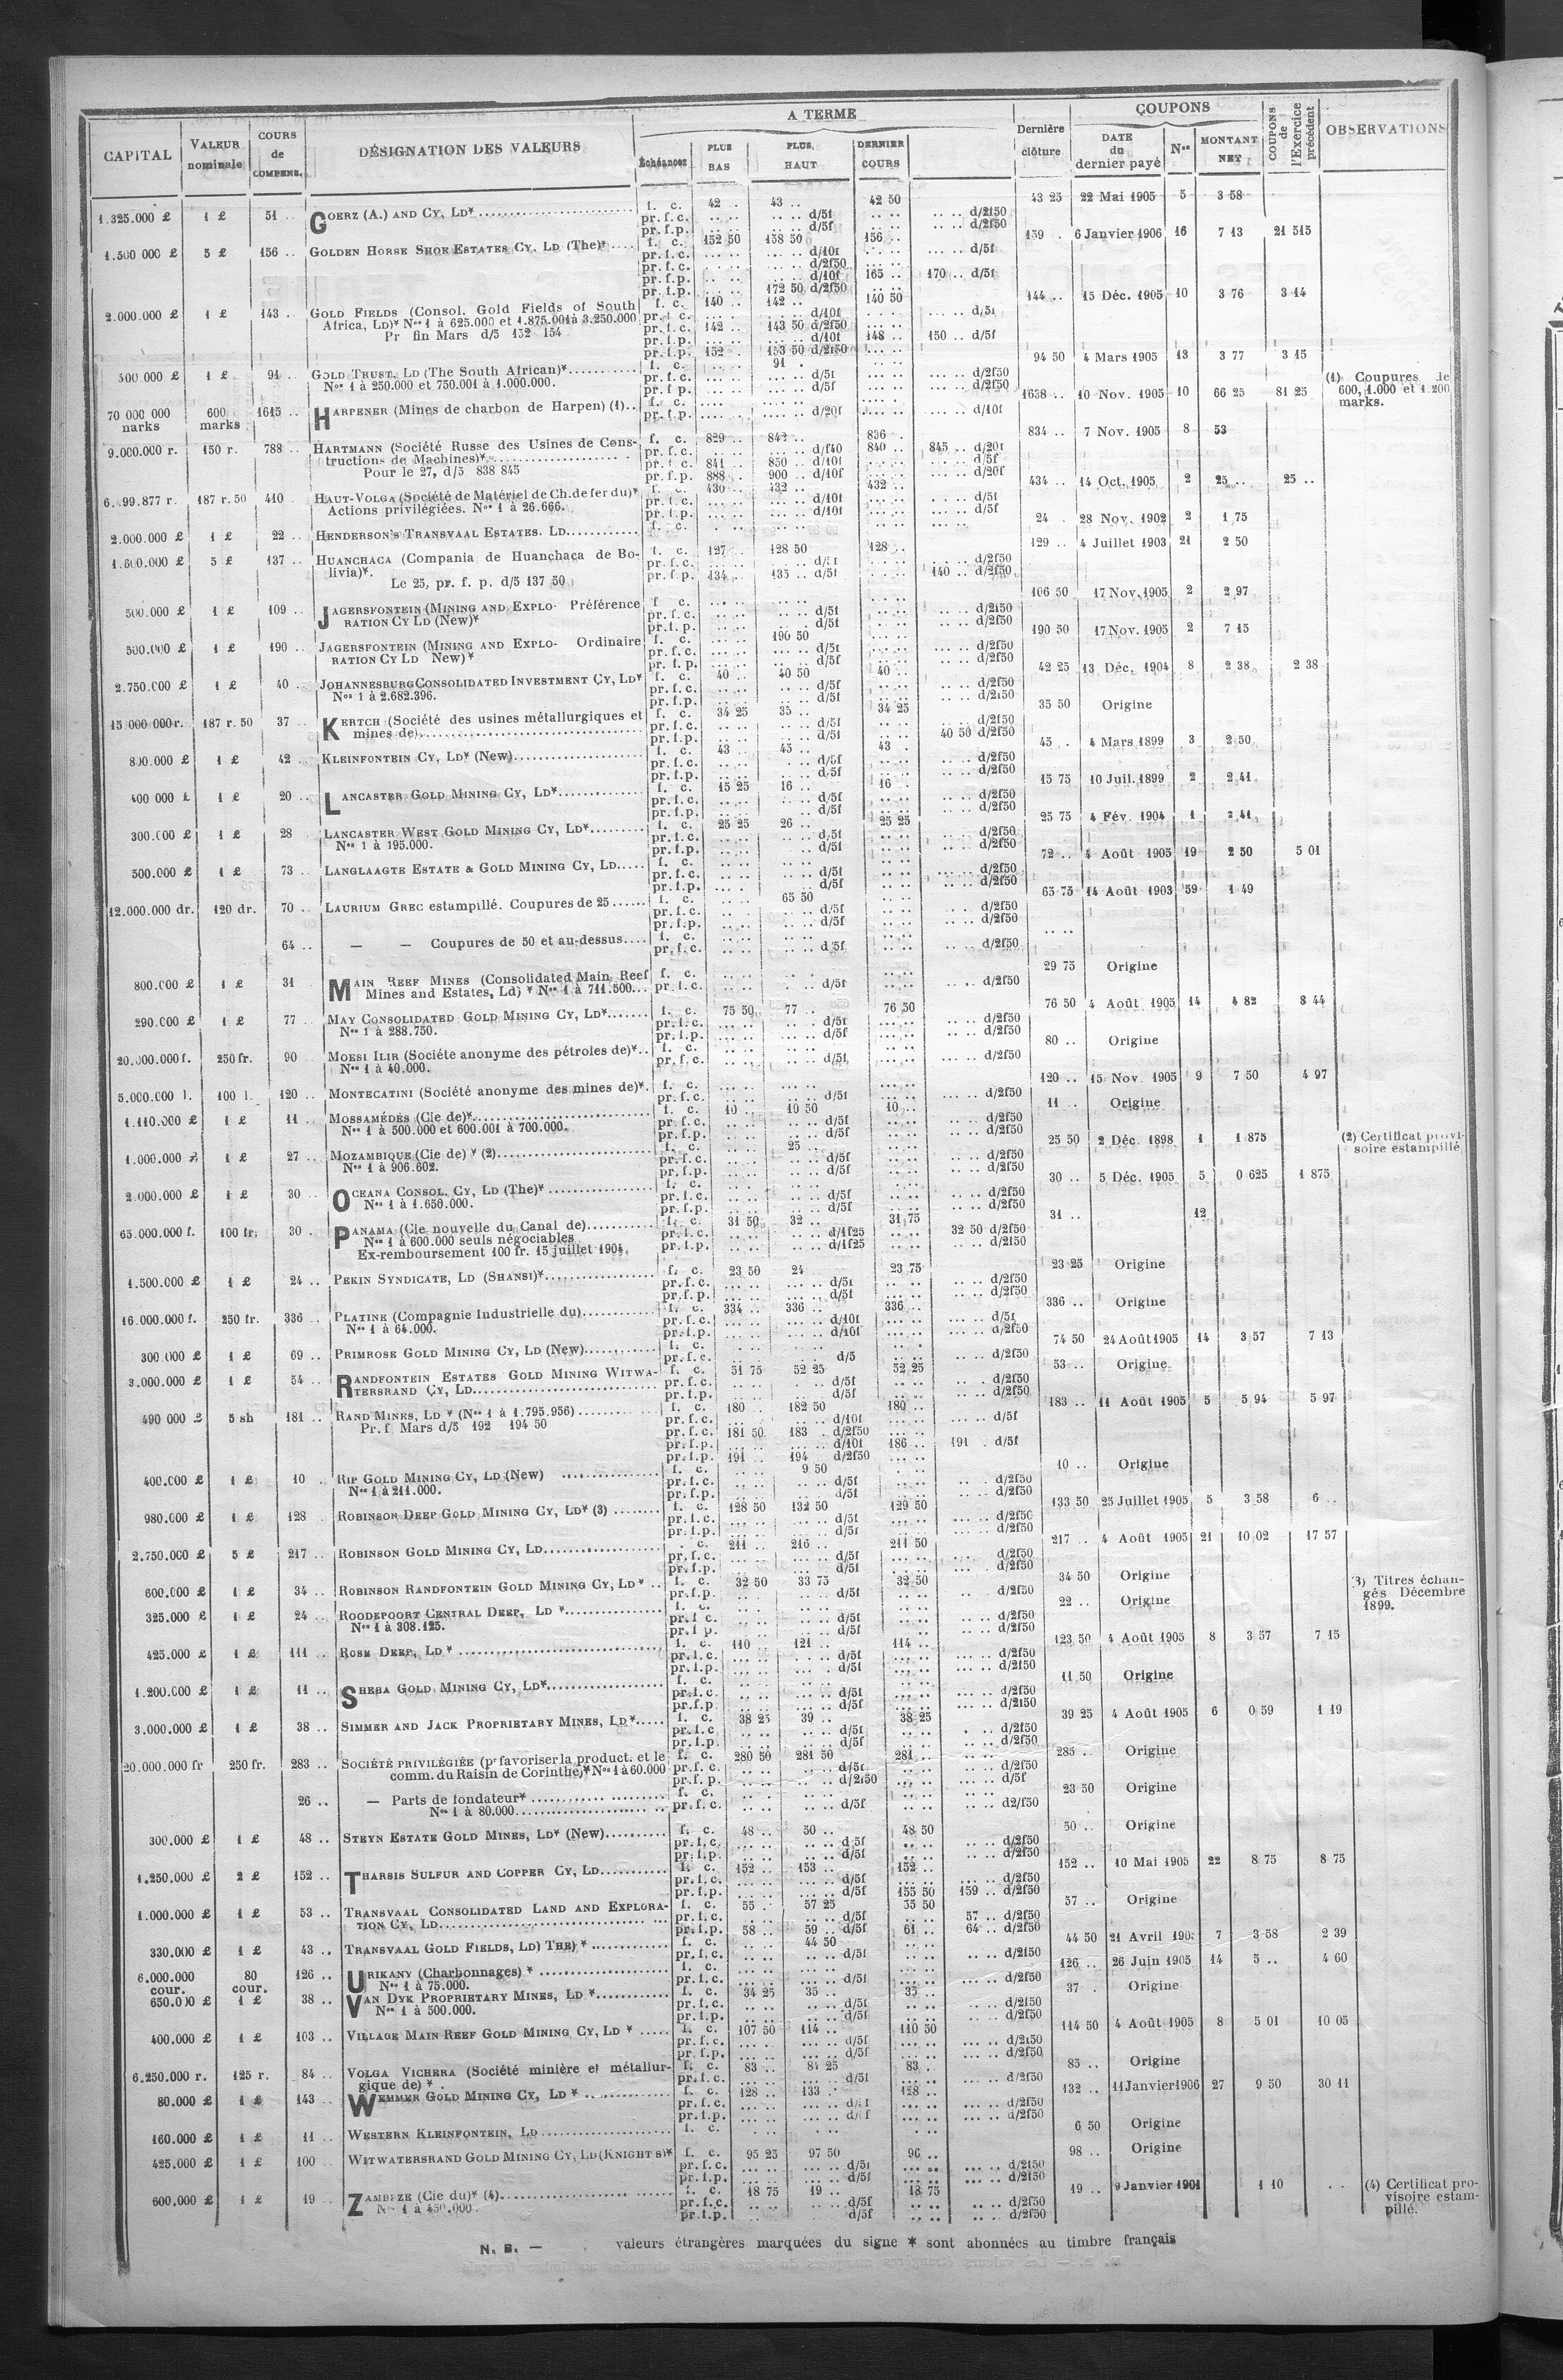 CAPITAL | VALEUR nominale | COURS de COMPENS. | DÉSIGNATION DES VALEURS | A TERME | Échéances | PLUS BAS | PLUS HAUT | DERNIER COURS | Dernière clôture | COUPONS | DATE du dernier payé | Nos | MONTANT NET | COUPONS de l'Exercice précédent | OBSERVATIONS
1.325.000 £ 1 £ 51 .. GOERZ (A.) AND CY, LD* f. c. 42 .. 43 .. 42 50 43 25 22 Mai 1905 5 3 58
pr. f. c. d/5f d/2f50
pr. f. p. d/5f d/2f50
1.500 000 £ 5 £ 156 .. GOLDEN HORSE SHOE ESTATES CY. LD (The)* f. c. 152 50 158 50 156 .. 159 . 6 Janvier 1906 16 7 13 21 515
pr. f. c. d/10f d/5f
pr. f. c. d/2f50
pr. f. p. d/10f 165 .. 170 .. d/5f
pr. f. p. 172 50 d/2f50
2.000.000 £ 1 £ 143 .. GOLD FIELDS (Consol. Gold Fields of South f. c. 140 .. 142 .. 140 50 144 .. 15 Déc. 1905 10 3 76 3 14
Africa, LD)* Nos 1 à 625.000 et 1.875.001 à 3.250.000 pr. f. c. d/10f d/5f
Pr fin Mars d/5 152 154 pr. f. c. 142 .. 143 50 d/2f50
pr. f. p. d/10f 148 .. 150 .. d/5f
pr. f. p. 152 . 153 50 d/2f50
500 000 £ 1 £ 91 .. GOLD TRUST, LD (The South African)* f. c. 91 . 94 50 4 Mars 1905 13 3 77 3 15
Nos 1 à 250.000 et 750.001 à 1.000.000. pr. f. c. d/5f d/2f50
pr. f. p. d/5f d/2f50
(1) Coupures de
600, 1.000 et 1.200
marks.
70 000 000 marks 600 marks 1615 .. HARPENER (Mines de charbon de Harpen) (1) f. c. 1638 .. 10 Nov. 1905 10 66 25 81 25
pr. f. p. d/20f d/10f
9.000.000 r. 150 r. 788 .. HARTMANN (Société Russe des Usines de Cons- f. c. 829 .. 842 .. 836 . 834 .. 7 Nov. 1905 8 53
tructions de Machines)* pr. f. c. d/f40 840 .. 845 .. d/20f
Pour le 27, d/5 838 845 pr. f. c. 841 .. 850 .. d/10f d/5f
pr. f. p. 888 .. 900 .. d/10f d/20f
187 r. 50 410 . HAUT-VOLGA (Société de Matériel de Ch. de fer du)* f. c. 430 .. 432 .. 432 .. 434 .. 14 Oct. 1905 2 25 .. 25 ..
Actions privilégiées. Nos 1 à 26.666. pr. f. c. d/10f d/5f
pr. f. p. d/10f d/5f
2.000.000 £ 1 £ 22 .. HENDERSON'S TRANSVAAL ESTATES. LD f. c. 24 . 28 Nov. 1902 2 1 75
1.600.000 £ 5 £ 137 .. HUANCHACA (Compania de Huanchaca de Bo- f. c. 127 .. 128 50 128 .. 129 .. 4 Juillet 1903 21 2 50
livia)*. pr. f. c. d/5f d/2f50
Le 25, pr. f. p. d/5 137 50 pr. f. p. 134 .. 135 .. d/5f 140 .. d/2f50
500.000 £ 1 £ 109 .. JAGERSFONTEIN (MINING AND EXPLO- Préférence f. c. 106 50 17 Nov. 1905 2 2 97
RATION CY LD (New)* pr. f. c. d/5f d/2f50
pr. f. p. d/5f d/2f50
500.000 £ 1 £ 190 .. JAGERSFONTEIN (MINING AND EXPLO- Ordinaire f. c. 190 50 190 50 17 Nov. 1905 2 7 15
RATION CY LD New)* pr. f. c. d/5f d/2f50
pr. f. p. d/5f d/2f50
2.750.000 £ 1 £ 40 .. JOHANNESBURG CONSOLIDATED INVESTMENT CY, LD* f. c. 40 .. 40 50 40 .. 42 25 13 Déc. 1904 8 2 38 2 38
Nos 1 à 2.682.396. pr. f. c. d/5f d/2f50
pr. f. p. d/5f d/2f50
15 000 000 r. 187 r. 50 37 .. KERTCH (Société des usines métallurgiques et f. c. 34 25 35 .. 34 25 35 50 Origine
mines de) pr. f. c. d/5f d/2f50
pr. f. p. d/5f 40 50 d/2f50
800.000 £ 1 £ 42 .. KLEINFONTEIN CY, LD* (New) f. c. 43 .. 45 .. 43 . 45 . 4 Mars 1899 3 2 50
pr. f. c. d/5f d/2f50
pr. f. p. d/5f d/2f50
400 000 £ 1 £ 20 .. LANCASTER GOLD MINING CY, LD* f. c. 15 25 16 .. 16 . 15 75 10 Juil. 1899 2 2 41
pr. f. c. d/5f d/2f50
pr. f. p. d/5f d/2f50
300.000 £ 1 £ 28 LANCASTER WEST GOLD MINING CY, LD* f. c. 25 25 26 .. 25 25 25 75 4 Fév. 1904 1 2 41
Nos 1 à 195.000. pr. f. c. d/5f d/2f50
pr. f. p. d/5f d/2f50
500.000 £ 1 £ 73 .. LANGLAAGTE ESTATE & GOLD MINING CY, LD f. c. 72 .. 4 Août 1905 19 2 50 5 01
pr. f. c. d/5f d/2f50
pr. f. p. d/5f d/2f50
12.000.000 dr. 120 dr. 70 .. LAURIUM GREC estampillé. Coupures de 25 f. c. 65 50 65 75 14 Août 1903 59 1 49
pr. f. c. d/5f d/2f50
pr. f. p. d/5f d/2f50
64 .. — — Coupures de 50 et au-dessus f. c.
pr. f. c. d/5f d/2f50
800.000 £ 1 £ 31 MAIN REEF MINES (Consolidated Main Reef f. c. 29 75 Origine
Mines and Estates, Ld) * Nos 1 à 711.500 pr. f. c. d/5f d/2f50
290.000 £ 1 £ 77 .. MAY CONSOLIDATED GOLD MINING CY, LD* f. c. 75 50 77 .. 76 50 76 50 4 Août 1905 14 4 82 8 44
Nos 1 à 288.750. pr. f. c. d/5f d/2f50
pr. f. p. d/5f d/2f50
20.000.000 f. 250 fr. 90 MOESI ILIR (Société anonyme des pétroles de)* f. c. 80 .. Origine
Nos 1 à 40.000. pr. f. c. d/5f d/2f50
5.000.000 l. 100 l. 120 .. MONTECATINI (Société anonyme des mines de)* f. c. 120 .. 15 Nov. 1905 9 7 50 4 97
pr. f. c. d/5f d/2f50
1.110.000 £ 1 £ 11 .. MOSSAMÉDÈS (Cie de)* f. c. 10 .. 10 50 10 .. 11 .. Origine
Nos 1 à 500.000 et 600.001 à 700.000. pr. f. c. d/5f d/2f50
pr. f. p. d/5f d/2f50
1.000.000 £ 1 £ 27 .. MOZAMBIQUE (Cie de) * (2) f. c. 25 .. 25 50 2 Déc. 1898 1 1 875 (2) Certificat provi-
Nos 1 à 906.602. pr. f. c. d/5f d/2f50 soire estampillé
pr. f. p. d/5f d/2f50
2.000.000 £ 1 £ 30 .. OCEANA CONSOL. CY, LD (The)* f. c. 30 .. 5 Déc. 1905 5 0 625 1 875
Nos 1 à 1.650.000. pr. f. c. d/5f d/2f50
pr. f. p. d/5f d/2f50
65.000.000 f. 100 fr. 30 . PANAMA (Cie nouvelle du Canal de) f. c. 31 50 32 .. 31 75 31 .. 12
Nos 1 à 600.000 seuls négociables pr. f. c. d/1f25 32 50 d/2f50
Ex-remboursement 100 fr. 15 juillet 1904. pr. f. p. d/1f25 d/2f50
1.500.000 £ 1 £ 24 .. PEKIN SYNDICATE, LD (SHANSI)* f. c. 23 50 24 23 75 23 25 Origine
pr. f. c. d/5f d/2f50
pr. f. p. d/5f d/2f50
16.000.000 f. 250 fr. 336 .. PLATINE (Compagnie Industrielle du) f. c. 334 .. 336 .. 336 .. 336 .. Origine
Nos 1 à 64.000. pr. f. c. d/10f d/5f
pr. f. p. d/10f d/2f50
300.000 £ 1 £ 69 .. PRIMROSE GOLD MINING CY, LD (New) f. c. 74 50 24 Août 1905 14 3 57 7 13
pr. f. c. d/5 d/2f50
3.000.000 £ 1 £ 54 .. RANDFONTEIN ESTATES GOLD MINING WITWA- f. c. 51 75 52 25 52 25 53 .. Origine
TERSRAND CY, LD pr. f. c. d/5f d/2f50
pr. f. p. d/5f d/2f50
490 000 £ 5 sh 181 .. RAND MINES, LD * (Nos 1 à 1.795.956) f. c. 180 .. 182 50 180 .. 183 .. 11 Août 1905 5 5 94 5 97
Pr. f Mars d/5 192 194 50 pr. f. c. d/10f d/5f
pr. f. c. 181 50 183 . d/2f50
pr. f. p. d/10f 186 .. 191 . d/5f
pr. f. p. 191 .. 194 d/2f50
400.000 £ 1 £ 10 .. RIP GOLD MINING CY, LD (New) f. c. 9 50 10 .. Origine
Nos 1 à 211.000. pr. f. c. d/5f d/2f50
pr. f. p. d/5f d/2f50
980.000 £ 1 £ 128 ROBINSON DEEP GOLD MINING CY, LD* (3) f. c. 128 50 132 50 129 50 133 50 25 Juillet 1905 5 3 58 6 ..
pr. f. c. d/5f d/2f50
pr. f. p. d/5f d/2f50
2.750.000 £ 5 £ 217 .. ROBINSON GOLD MINING CY, LD . c. 211 .. 216 .. 211 50 217 .. 4 Août 1905 21 10 02 17 57
pr. f. c. d/5f d/2f50
pr. f. p. d/5f d/2f50
600.000 £ 1 £ 34 .. ROBINSON RANDFONTEIN GOLD MINING CY, LD * f. c. 32 50 33 75 32 50 34 50 Origine (3) Titres échan-
pr. f. p. d/5f d/2f50 gés Décembre
1899.
325.000 £ 1 £ 24 .. ROODEPOORT CENTRAL DEEP, LD * f. c. 22 .. Origine
Nos 1 à 308.125. pr. f. c. d/5f d/2f50
pr. f. p. d/5f d/2f50
425.000 £ 1 £ 111 .. ROSE DEEP, LD * f. c. 110 121 .. 114 .. 123 50 4 Août 1905 8 3 57 7 15
pr. f. c. d/5f d/2f50
pr. f. p. d/5f d/2f50
1.200.000 £ 1 £ 11 .. SHEBA GOLD MINING CY, LD* f. c. 11 50 Origine
pr. f. c. d/5f d/2f50
pr. f. p. d/5f d/2f50
3.000.000 £ 1 £ 38 .. SIMMER AND JACK PROPRIETARY MINES, LD* f. c. 38 25 39 .. 38 25 39 25 4 Août 1905 6 0 59 1 19
pr. f. c. d/5f d/2f50
pr. f. p. d/5f d/2f50
20.000.000 fr 250 fr. 283 .. SOCIÉTÉ PRIVILÉGIÉE (pr favoriser la product. et le f. c. 280 50 281 50 281 .. 285 .. Origine
comm. du Raisin de Corinthe)* Nos 1 à 60.000 pr. f. c. d/5f d/2f50
pr. f. p. d/2f50 d/5f
26 .. — Parts de fondateur* f. c. 23 50 Origine
Nos 1 à 80.000 pr. f. c. d/5f d2/f50
300.000 £ 1 £ 48 .. STEYN ESTATE GOLD MINES, LD* (New) f. c. 48 .. 50 .. 48 50 50 .. Origine
pr. f. c. d/5f d/2f50
pr. f. p. d/5f d/2f50
1.250.000 £ 2 £ 152 .. THARSIS SULFUR AND COPPER CY, LD f. c. 152 .. 153 .. 152 .. 152 .. 10 Mai 1905 22 8 75 8 75
pr. f. c. d/5f d/2f50
pr. f. p. d/5f 155 50 159 .. d/2f50
1.000.000 £ 1 £ 53 .. TRANSVAAL CONSOLIDATED LAND AND EXPLORA- f. c. 55 . 57 25 55 50 57 .. Origine
TION CY, LD pr. f. c. d/5f 57 .. d/2f50
pr. f. p. 58 .. 59 .. d/5f 61 .. 64 .. d/2f50
330.000 £ 1 £ 43 .. TRANSVAAL GOLD FIELDS, LD) THE) * f. c. 44 50 44 50 21 Avril 7 3 58 2 39
pr. f. c. d/5f d/2f50
6.000.000 cour. 80 cour. 126 .. URIKANY (Charbonnages) * f. c. 126 .. 26 Juin 1905 14 5 .. 4 60
Nos 1 à 75.000. pr. f. c. d/5f d/2f50
650.000 £ 1 £ 38 .. VAN DYK PROPRIETARY MINES, LD * f. c. 34 25 35 .. 35 .. 37 . Origine
Nos 1 à 500.000. pr. f. c. d/5f d/2f50
pr. f. p. d/5f d/2f50
400.000 £ 1 £ 103 .. VILLAGE MAIN REEF GOLD MINING CY, LD * f. c. 107 50 114 .. 110 50 114 50 4 Août 1905 8 5 01 10 05
pr. f. c. d/5f d/2f50
pr. f. p. d/5f d/2f50
6.250.000 r. 125 r. 84 .. VOLGA VICHERA (Société minière et métallur- f. c. 83 .. 84 25 83 .. 85 .. Origine
gique de) * . pr. f. c. d/5f d/2f50
80.000 £ 1 £ 143 .. WEMMER GOLD MINING CY, LD * f. c. 128 .. 133 . 128 .. 132 .. 11 Janvier 1906 27 9 50 30 11
pr. f. c. d/5f d/2f50
pr. f. p. d/5f d/2f50
160.000 £ 1 £ 11 .. WESTERN KLEINFONTEIN, LD f. c. 6 50 Origine
425.000 £ 1 £ 100 WITWATERSRAND GOLD MINING CY, LD (KNIGHT S)* f. c. 95 25 97 50 96 .. 98 .. Origine
pr. f. c. d/5f d/2f50
pr. f. p. d/5f d/2f50
600,000 £ 1 £ 19 .. ZAMBÈZE (Cie du)* (4) f. c. 18 75 19 .. 18 75 19 .. 9 Janvier 1901 1 10 (4) Certificat pro-
Nos 1 à 450.000. pr. f. c. d/5f d/2f50 visoire estam-
pr. f. p. d/5f d/2f50 pillé.
N. B. — valeurs étrangères marquées du signe * sont abonnées au timbre français